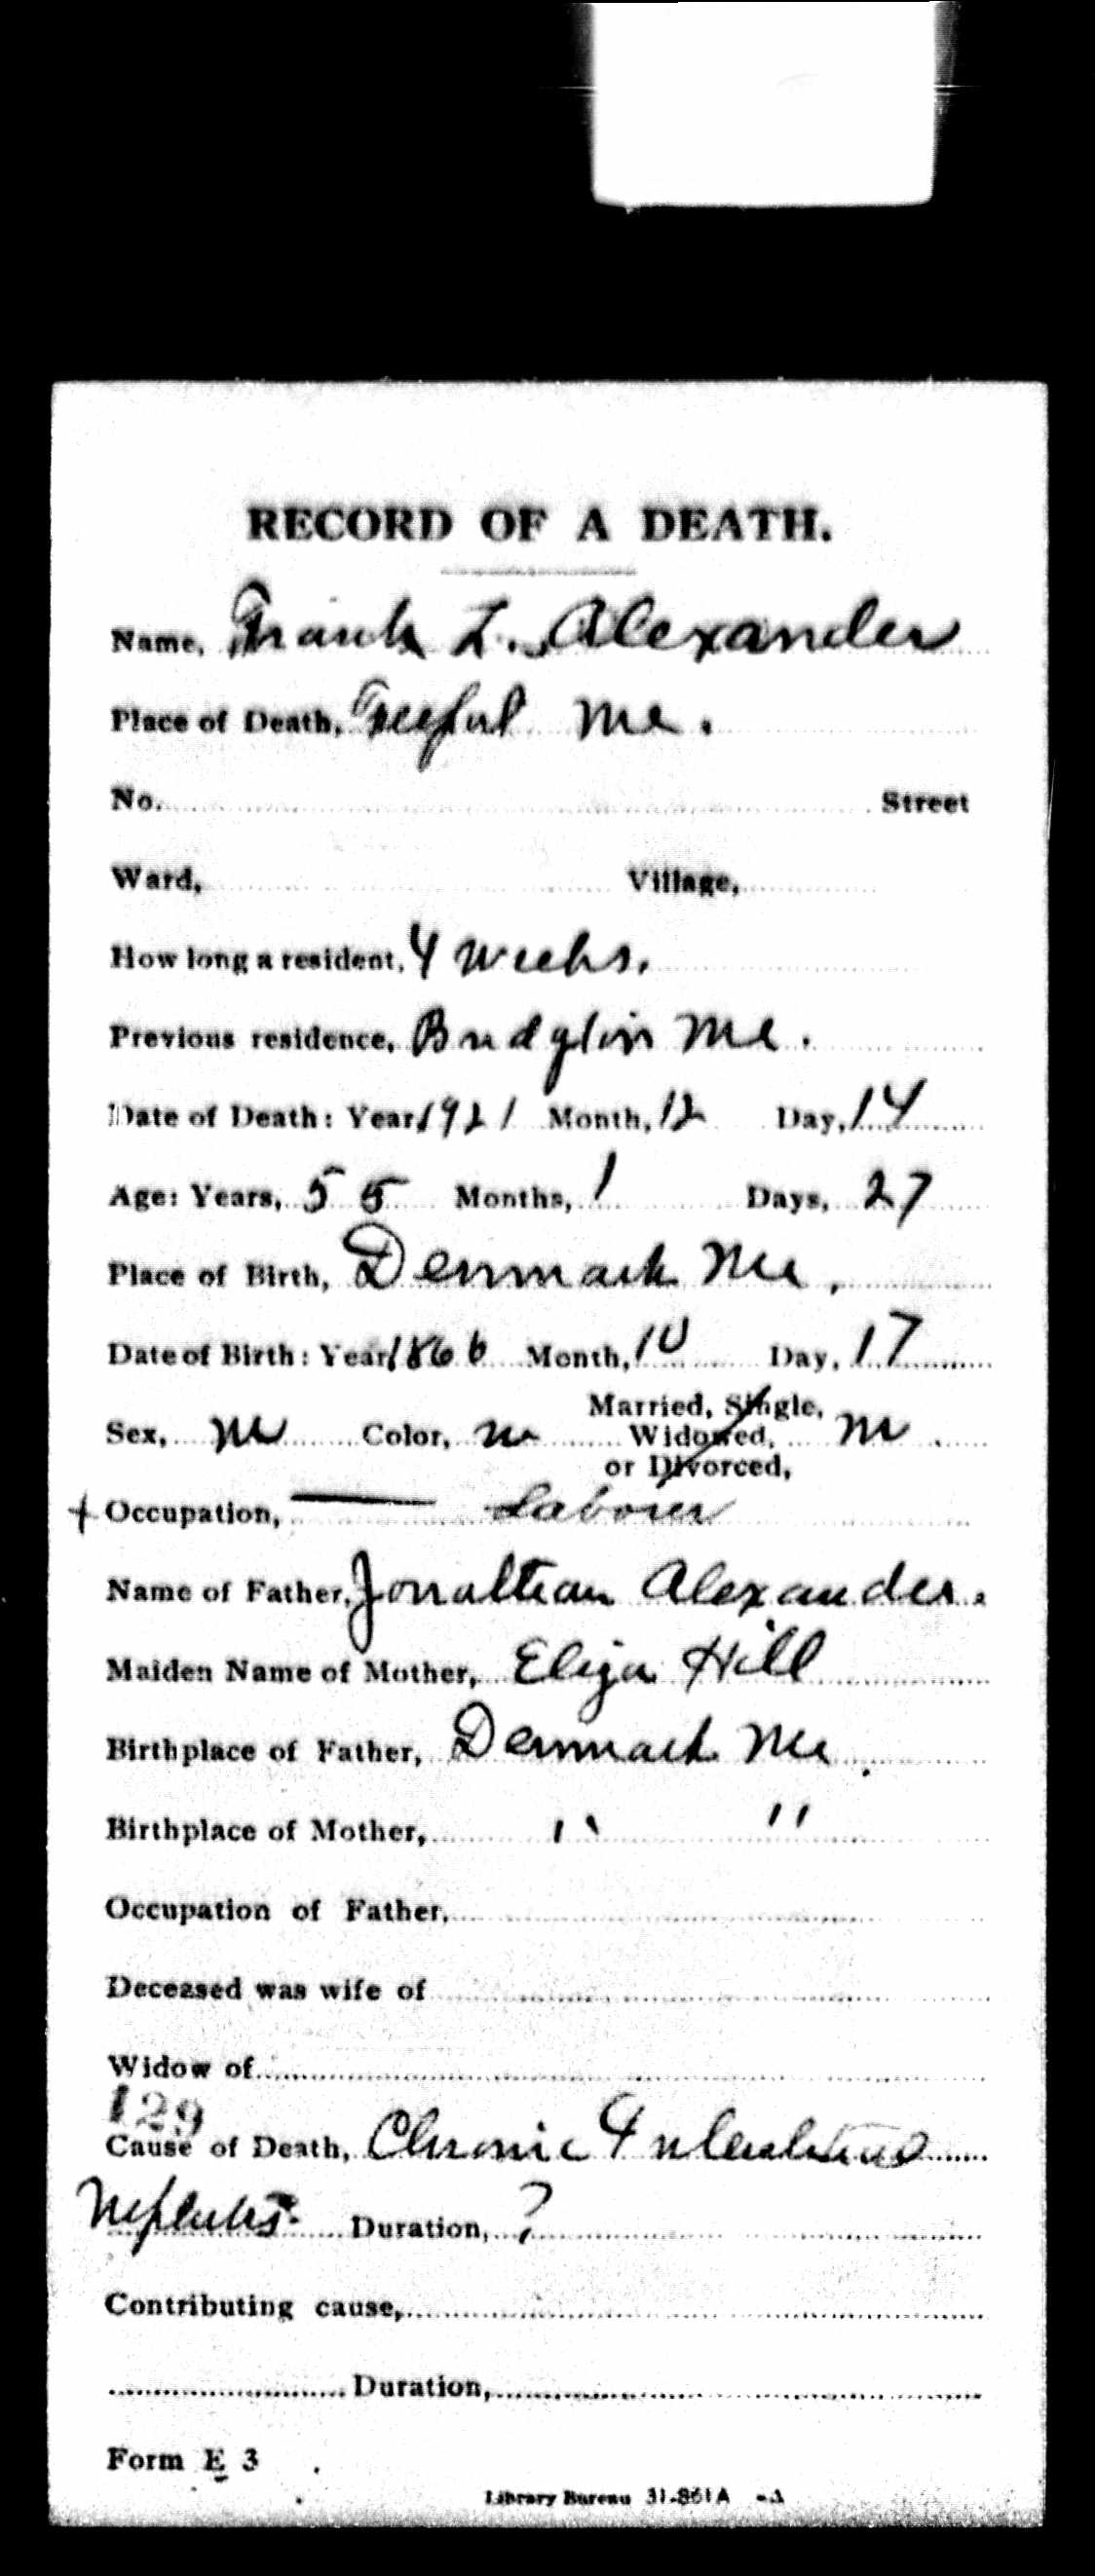 RECORD OF A DEATH.
Name, Frank L. Alexander
Place of Death, Me.
No. Street
Ward, Village,
How long a resident, 4 weeks.
Previous residence, Bridgton Me.
Date of Death: Year, 1921 Month, 12 Day, 14
Age: Years, 55 Months, 1 Days, 27
Place of Birth, Denmark Me,
Date of Birth: Year, 1866 Month, 10 Day, 17
Sex, M Color, W Married, Single, Widowed, or Divorced, M.
+ Occupation, Laborer
Name of Father, Jonathan Alexander.
Maiden Name of Mother, Eliza Hill
Birthplace of Father, Denmark Me.
Birthplace of Mother, " "
Occupation of Father,
Deceased was wife of
Widow of
129
Cause of Death, Chronic Interstitial
Nephritis. Duration, ?
Contributing cause,
Duration,
Form E 3
Library Bureau 31-861A